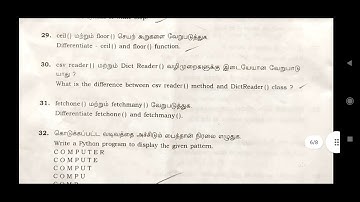 29. ceil() மற்றும் floor() செயற் கூறுகளை வேறுபடுத்துக.
Differentiate - ceil() and floor() function.
30. csv reader() மற்றும் Dict Reader() வழிமுறைகளுக்கு இடையேயான வேறுபாடு
யாது ?
What is the difference between csv reader() method and DictReader() class ?
31. fetchone() மற்றும் fetchmany() வேறுபடுத்துக.
Differentiate fetchone() and fetchmany().
32. கொடுக்கப்பட்ட வடிவத்தை அச்சிடும் பைத்தான் நிரலை எழுதுக.
Write a Python program to display the given pattern.
C O M P U T E R
C O M P U T E
C O M P U T
C O M P U
6/8